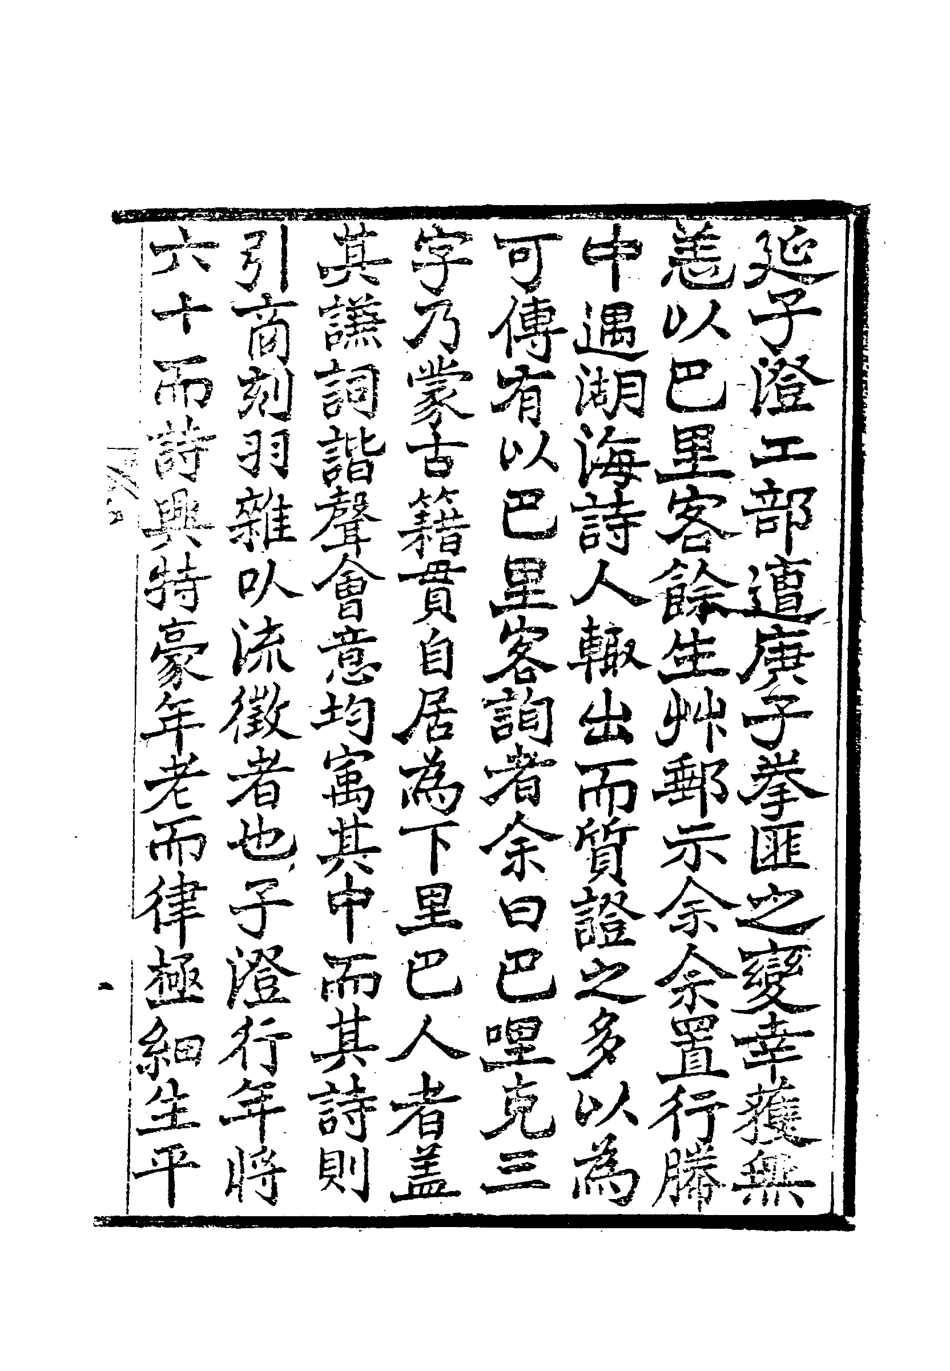 延子澄工部遭庚子拳匪之變幸獲無
恙以巴里客餘生艸郵示余余置行縢
中遇湖海詩人輙出而質證之多以為
可傳有以巴里客詢者余曰巴哩克三
字乃蒙古籍貫自居為下里巴人者盖
其讌詞諧聲會意均寓其中而其詩則
引商刻羽雜以流徵者也子澄行年將
六十而詩興特豪年老而律極細生平